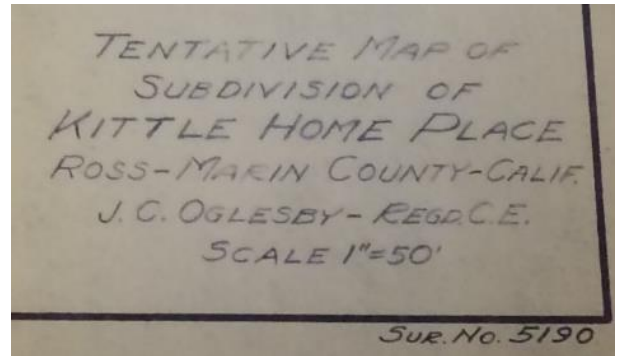 TENTATIVE MAP OF
SUBDIVISION OF
KITTLE HOME PLACE
ROSS-MARIN COUNTY-CALIF.
J. C. OGLESBY-REGD. C.E.
SCALE 1"=50'
SUR. NO. 5190